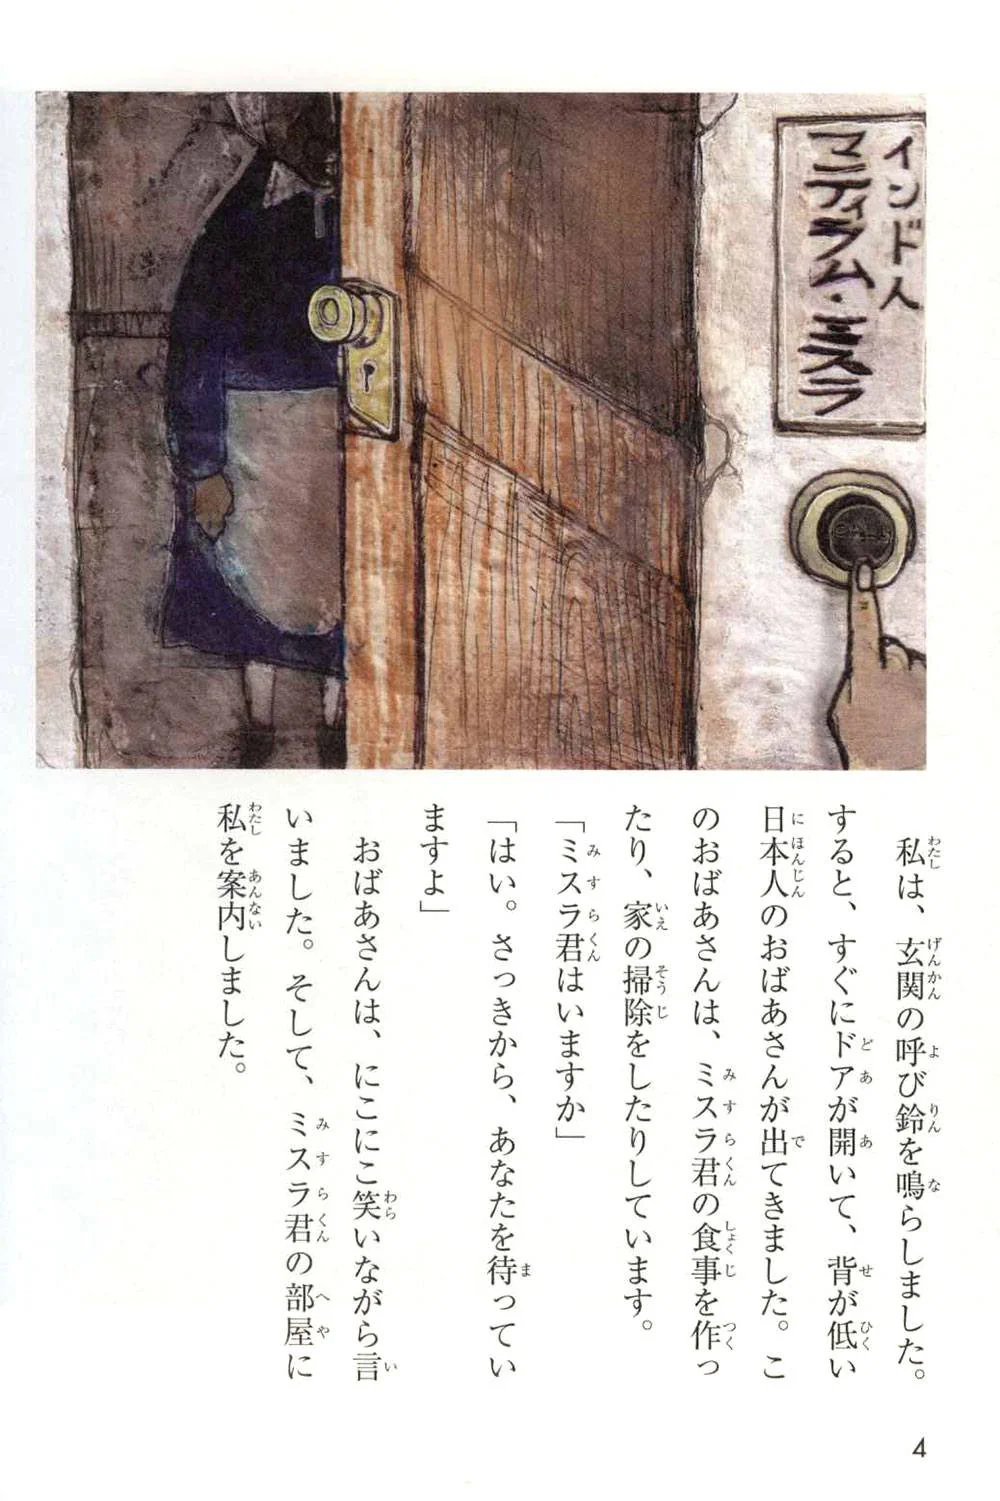 インド人
マニティラム・ミスラ
私は、玄関の呼び鈴を鳴らしました。
すると、すぐにドアが開いて、背が低い
日本人のおばあさんが出てきました。こ
のおばあさんは、ミスラ君の食事を作っ
たり、家の掃除をしたりしています。
「ミスラ君はいますか」
「はい。さっきから、あなたを待ってい
ますよ」
おばあさんは、にこにこ笑いながら言
いました。そして、ミスラ君の部屋に
私を案内しました。
4